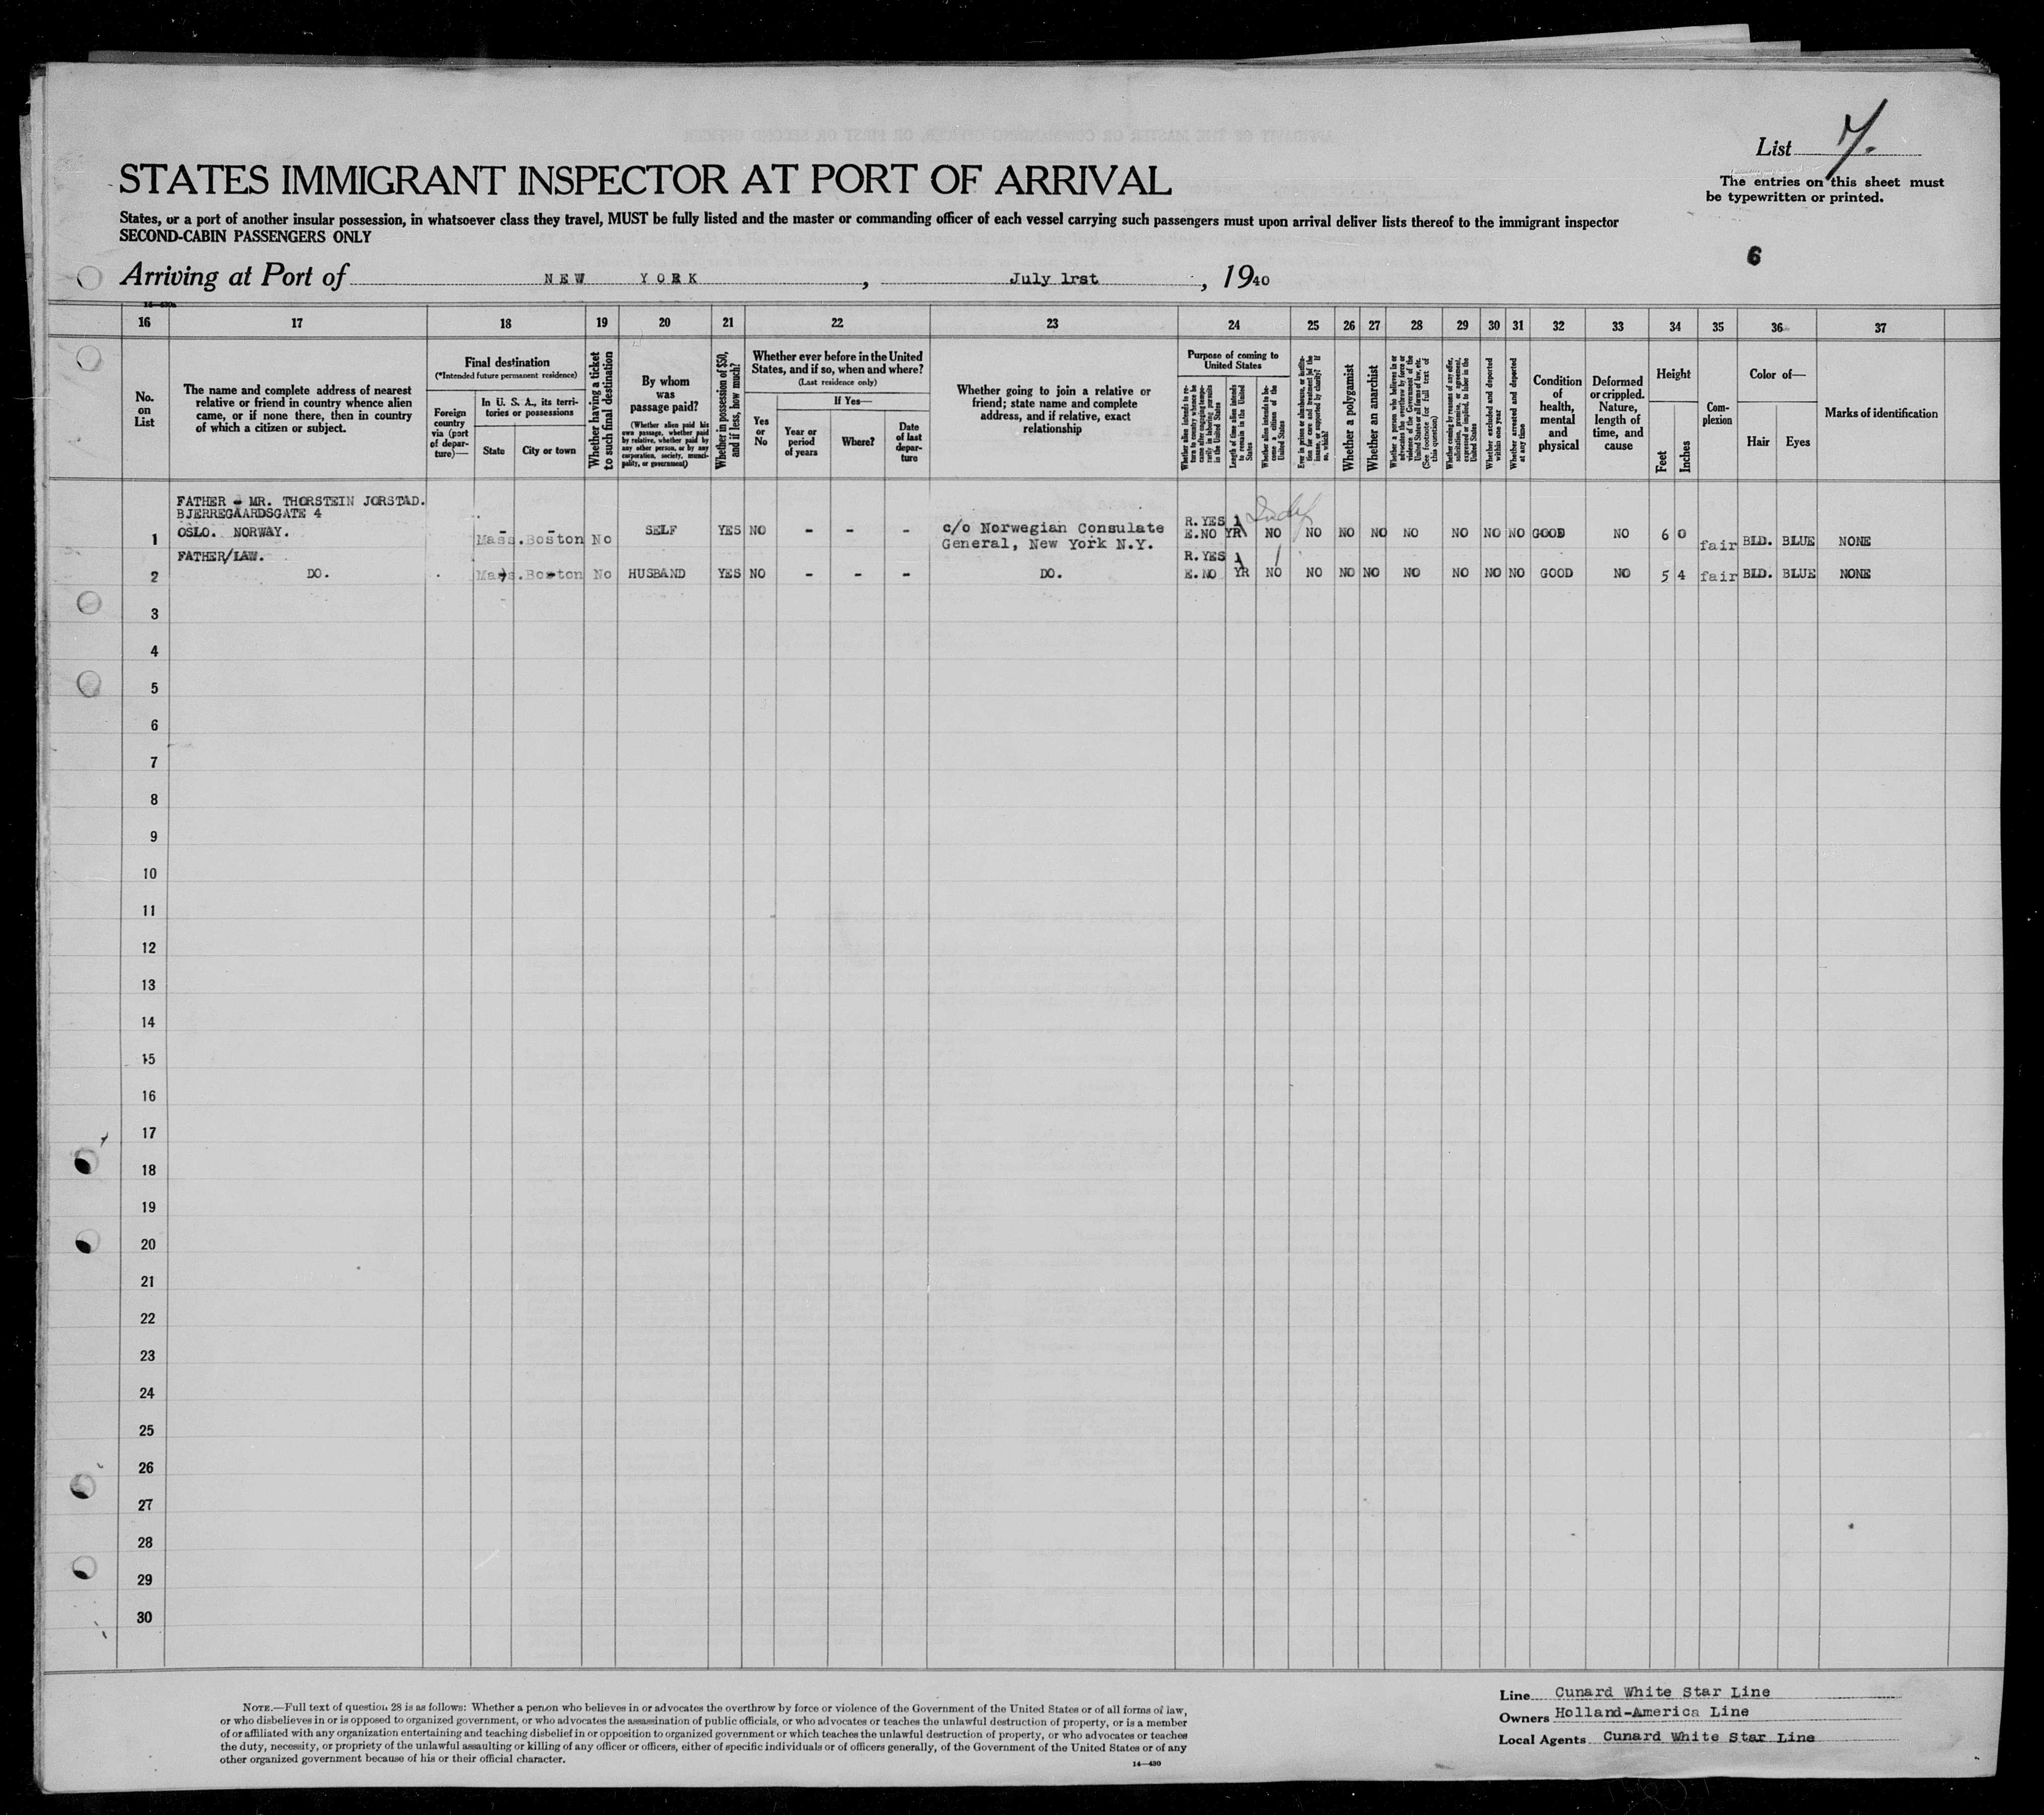 List 7.
The entries on this sheet must
be typewritten or printed.
STATES IMMIGRANT INSPECTOR AT PORT OF ARRIVAL
States, or a port of another insular possession, in whatsoever class they travel, MUST be fully listed and the master or commanding officer of each vessel carrying such passengers must upon arrival deliver lists thereof to the immigrant inspector
SECOND-CABIN PASSENGERS ONLY
6
Arriving at Port of NEW YORK, July 1rst, 1940
16 17 18 19 20 21 22 23 24 25 26 27 28 29 30 31 32 33 34 35 36 37
No.
on
List
The name and complete address of nearest
relative or friend in country whence alien
came, or if none there, then in country
of which a citizen or subject.
Final destination
(*Intended future permanent residence)
Foreign
country
via (port
of depar-
ture)—
In U. S. A., its terri-
tories or possessions
State
City or town
Whether having a ticket
to such final destination
By whom
was
passage paid?
(Whether alien paid his
own passage, whether paid
by relative, whether paid by
any other person, or by any
corporation, society, munici-
pality, or government)
Whether in possession of $50,
and if less, how much?
Whether ever before in the United
States, and if so, when and where?
(Last residence only)
Yes
or
No
If Yes—
Year or
period
of years
Where?
Date
of last
depar-
ture
Whether going to join a relative or
friend; state name and complete
address, and if relative, exact
relationship
Purpose of coming to
United States
Whether alien intends to re-
turn to country whence he
came after engaging tempo-
rarily in laboring pursuits
in the United States
Length of time alien intends
to remain in the United
States
Whether alien intends to be-
come a citizen of the
United States
Ever in prison or almshouse, or institu-
tion for care and treatment of the
insane, or supported by charity? If
so, which?
Whether a polygamist
Whether an anarchist
Whether a person who believes in or
advocates the overthrow by force or
violence of the Government of the
United States or all forms of law, etc.
(See footnote for full text of
this question)
Whether coming by reasons of any offer,
solicitation, promise, or agreement,
expressed or implied, to labor in the
United States
Whether excluded and deported
within one year
Whether arrested and deported
at any time
Condition
of
health,
mental
and
physical
Deformed
or crippled.
Nature,
length of
time, and
cause
Height
Feet
Inches
Com-
plexion
Color of—
Hair
Eyes
Marks of identification
FATHER - MR. THORSTEIN JORSTAD.
BJERREGAARDSGATE 4
OSLO. NORWAY.
1 - - Mass. Boston No SELF YES NO - - - c/o Norwegian Consulate
General, New York N.Y.
R. YES 1 Indef
E.NO YR NO NO NO NO NO NO NO NO GOOD NO 6 0 fair BLD. BLUE NONE
FATHER/LAW.
2 DO. Mass. Boston No HUSBAND YES NO - - - DO.
R. YES 1
E. NO YR NO NO NO NO NO NO NO NO GOOD NO 5 4 fair BLD. BLUE NONE
3
4
5
6
7
8
9
10
11
12
13
14
15
16
17
18
19
20
21
22
23
24
25
26
27
28
29
30
NOTE.—Full text of question 28 is as follows: Whether a person who believes in or advocates the overthrow by force or violence of the Government of the United States or of all forms of law,
or who disbelieves in or is opposed to organized government, or who advocates the assassination of public officials, or who advocates or teaches the unlawful destruction of property, or is a member
of or affiliated with any organization entertaining and teaching disbelief in or opposition to organized government or which teaches the unlawful destruction of property, or who advocates or teaches
the duty, necessity, or propriety of the unlawful assaulting or killing of any officer or officers, either of specific individuals or of officers generally, of the Government of the United States or of any
other organized government because of his or their official character.
14—430
Line Cunard White Star Line
Owners Holland-America Line
Local Agents Cunard White Star Line